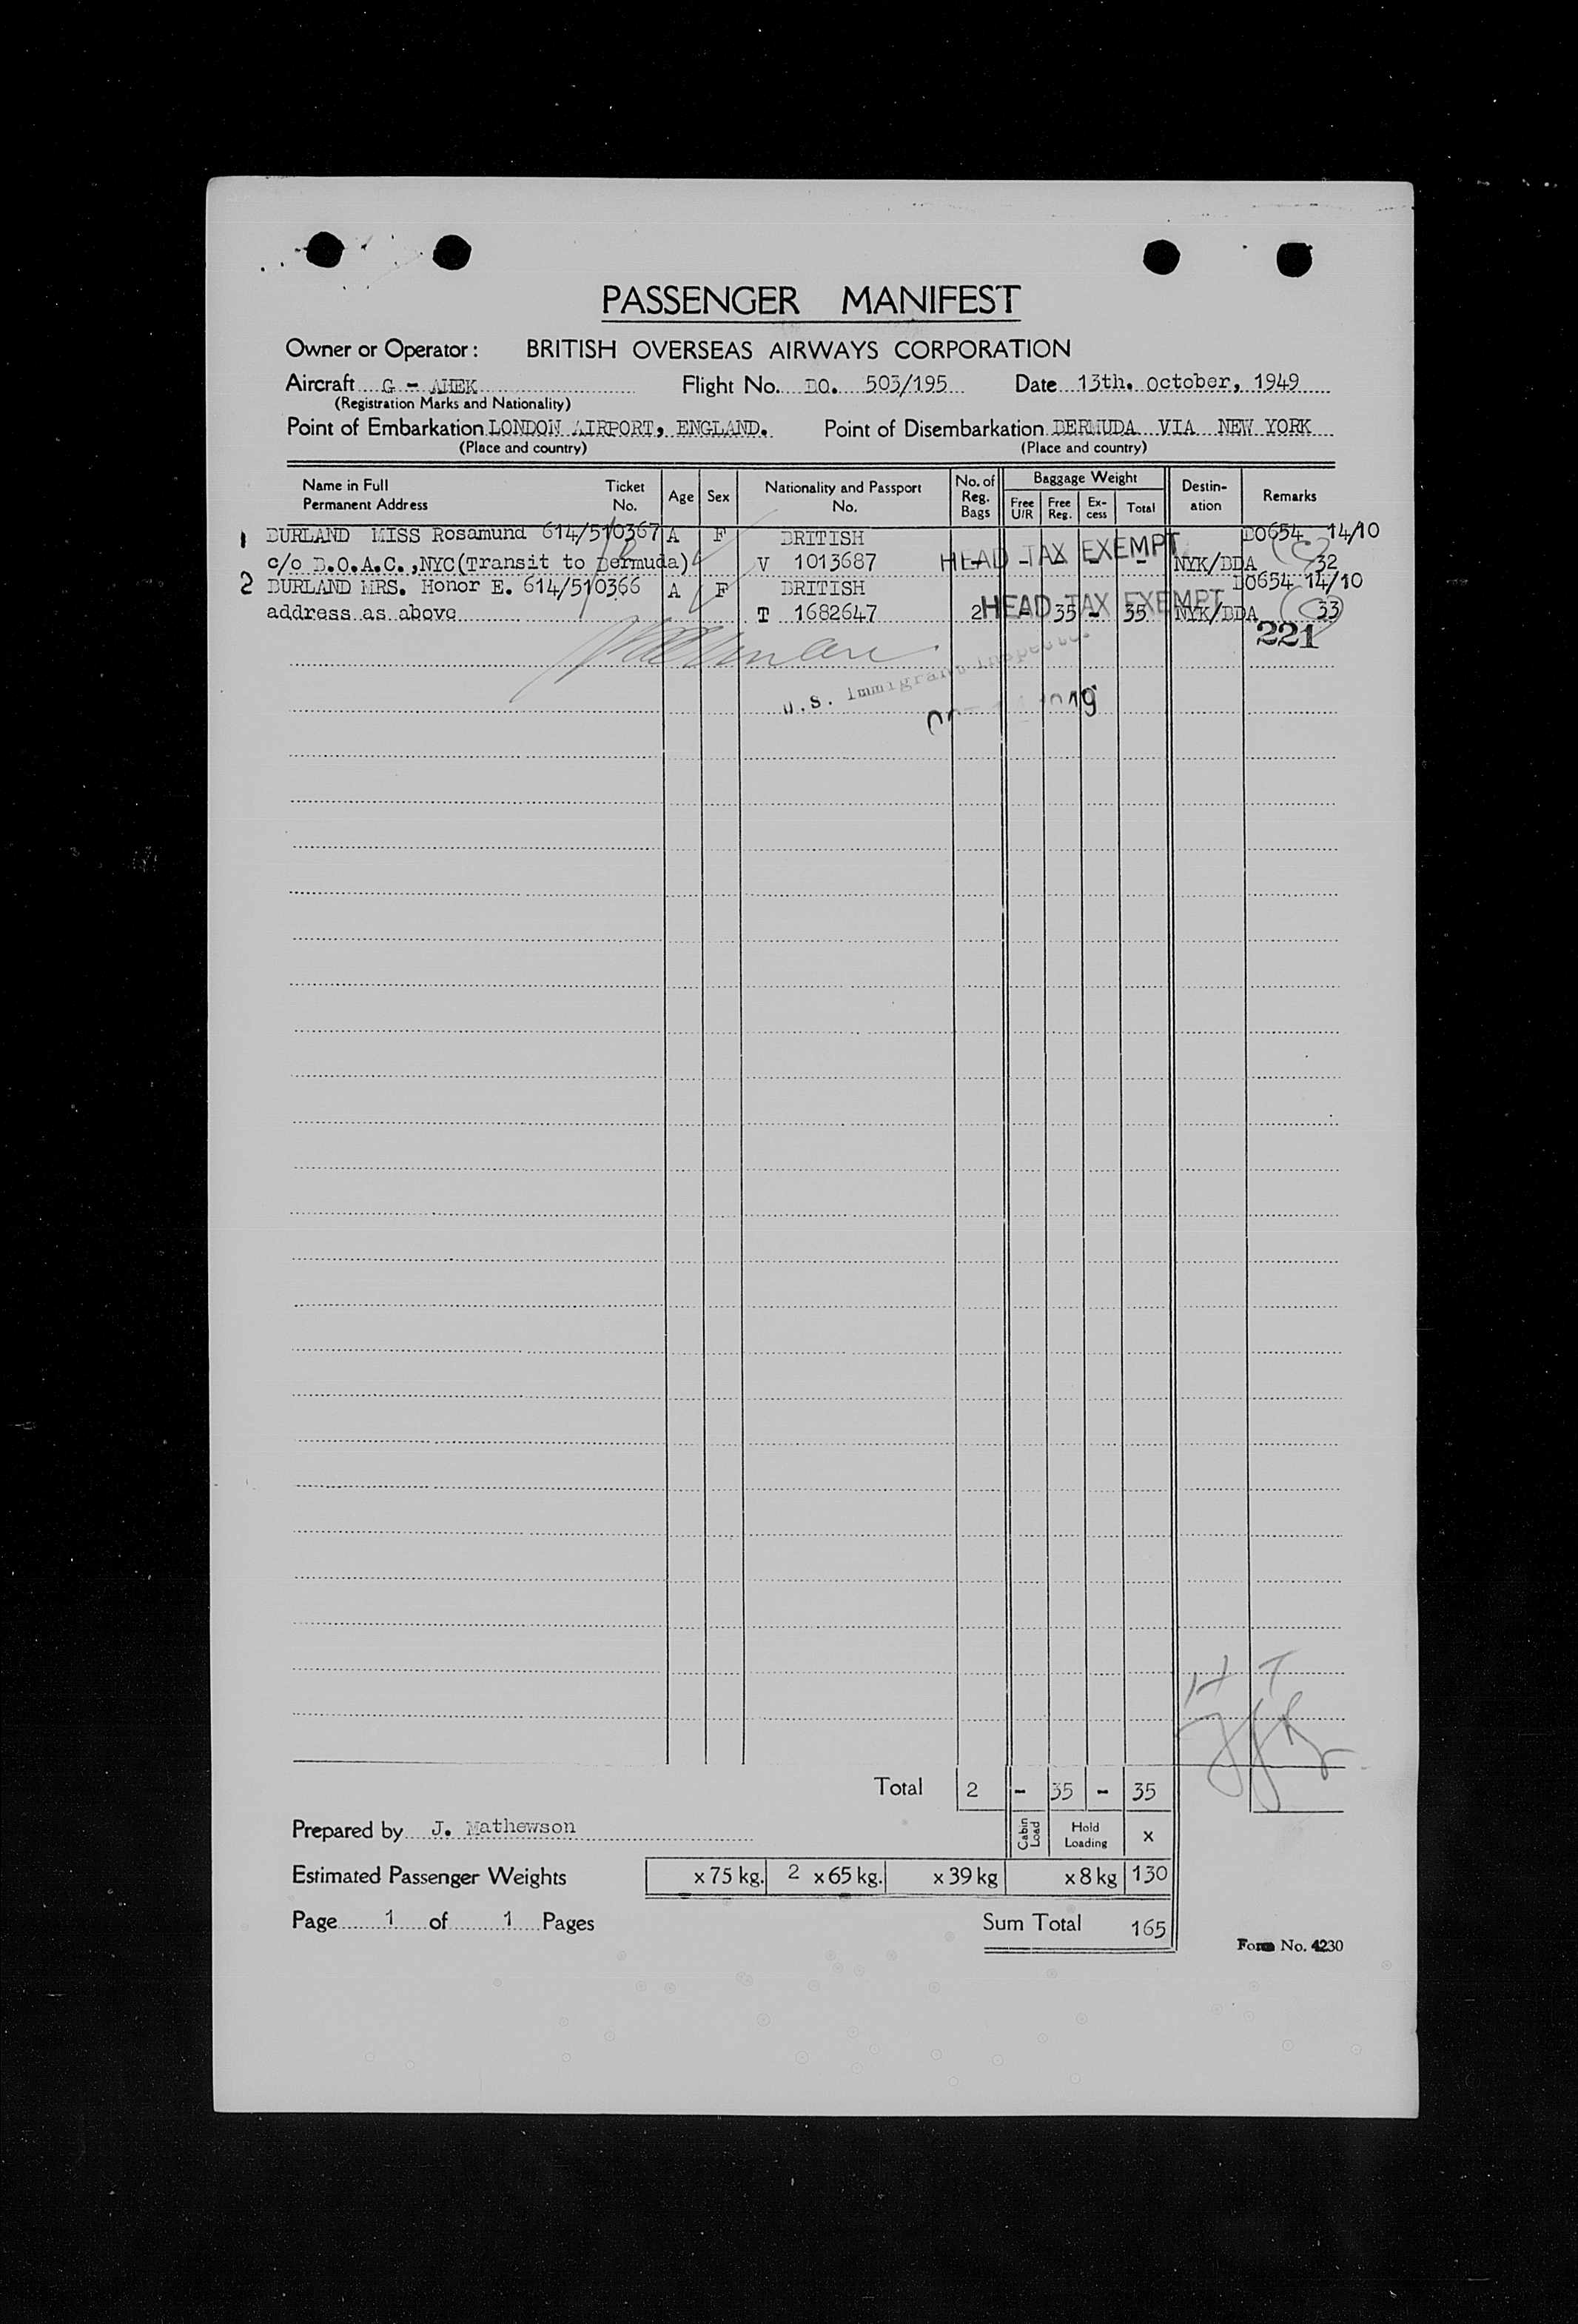 PASSENGER MANIFEST
Owner or Operator: BRITISH OVERSEAS AIRWAYS CORPORATION
Aircraft G - AHEK Flight No. BO. 503/195 Date 13th. October, 1949
(Registration Marks and Nationality)
Point of Embarkation LONDON AIRPORT, ENGLAND. Point of Disembarkation BERMUDA VIA NEW YORK
(Place and country) (Place and country)
Name in Full Permanent Address Ticket No. Age Sex Nationality and Passport No. No. of Reg. Bags Baggage Weight Free U/R Free Reg. Ex-cess Total Destin-ation Remarks
1 BURLAND MISS Rosamund 614/510367 A F BRITISH BO654 14/10
c/o B.O.A.C.,NYC(Transit to Bermuda) V 1013687 - - - - - NYK/BDA 32
HEAD TAX EXEMPT
2 BURLAND MRS. Honor E. 614/510366 A F BRITISH BO654 14/10
address as above T 1682647 2 - 35 - 35 NYK/BDA 33
HEAD TAX EXEMPT
221
U.S. Immigrant Inspector
H T
Total 2 - 35 - 35
Prepared by J. Mathewson Cabin Load Hold Loading x
Estimated Passenger Weights x 75 kg. 2 x 65 kg. x 39 kg x 8 kg 130
Page 1 of 1 Pages Sum Total 165
Form No. 4230